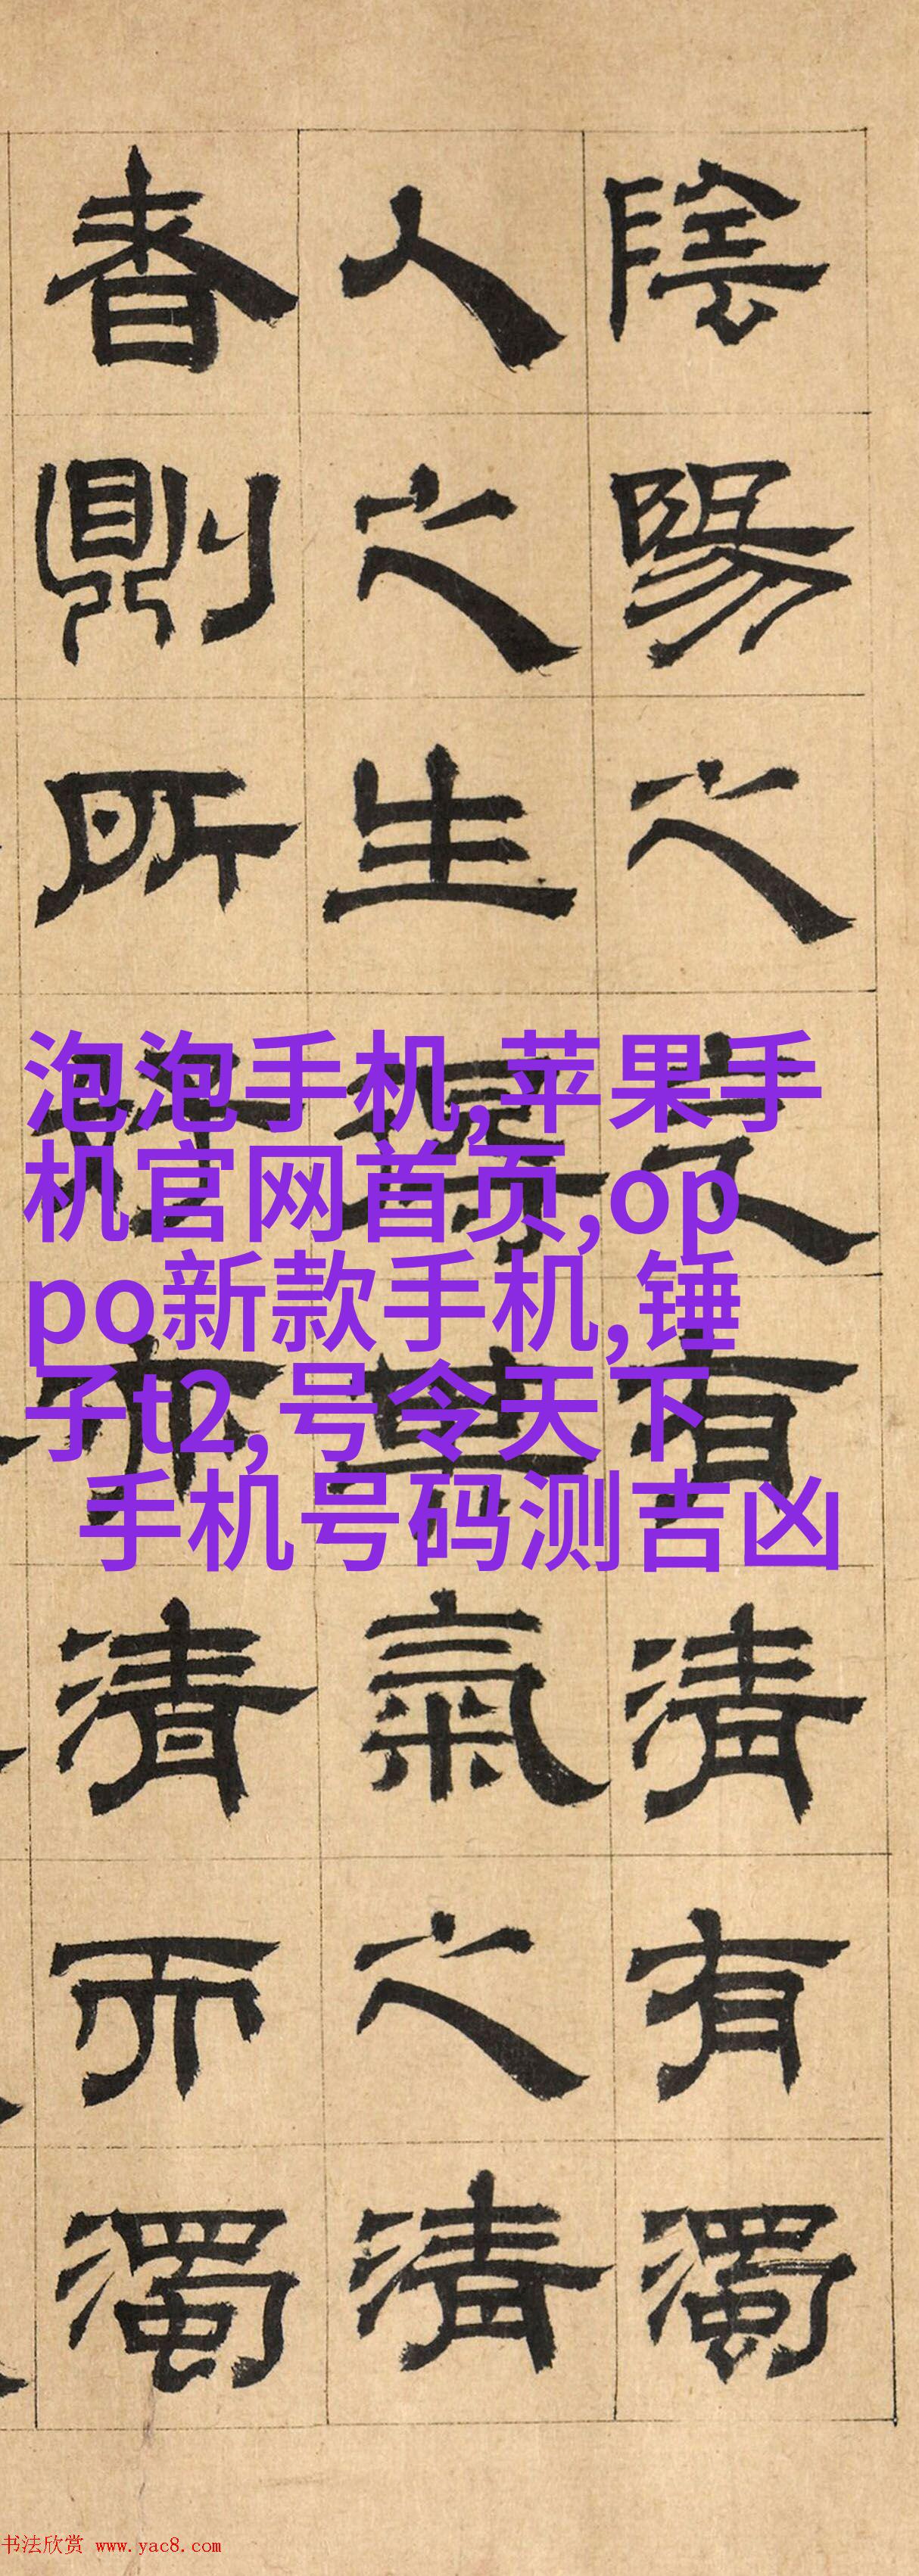 陰陽之有清有濁
人之生氣之清
者則所亦清而濁
泡泡手机,苹果手
机官网首页,op
po新款手机,锤
子t2,号令天下
手机号码测吉凶
书法欣赏 www.yac8.com